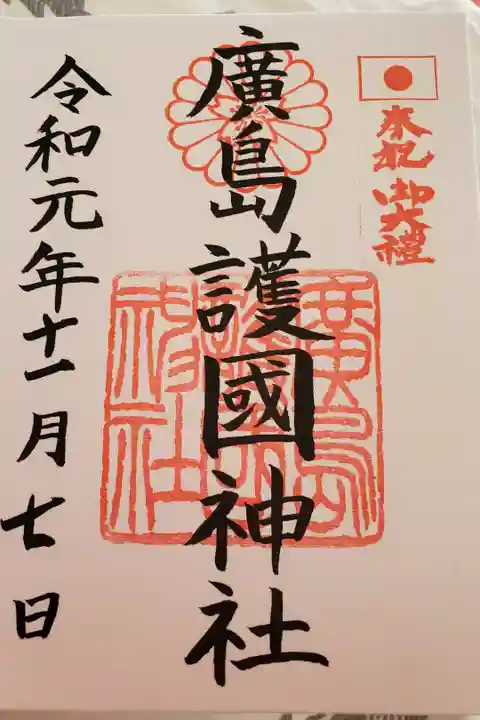 奉祝御大禮
廣島護國神社
廣島護國神社
令和元年十一月七日